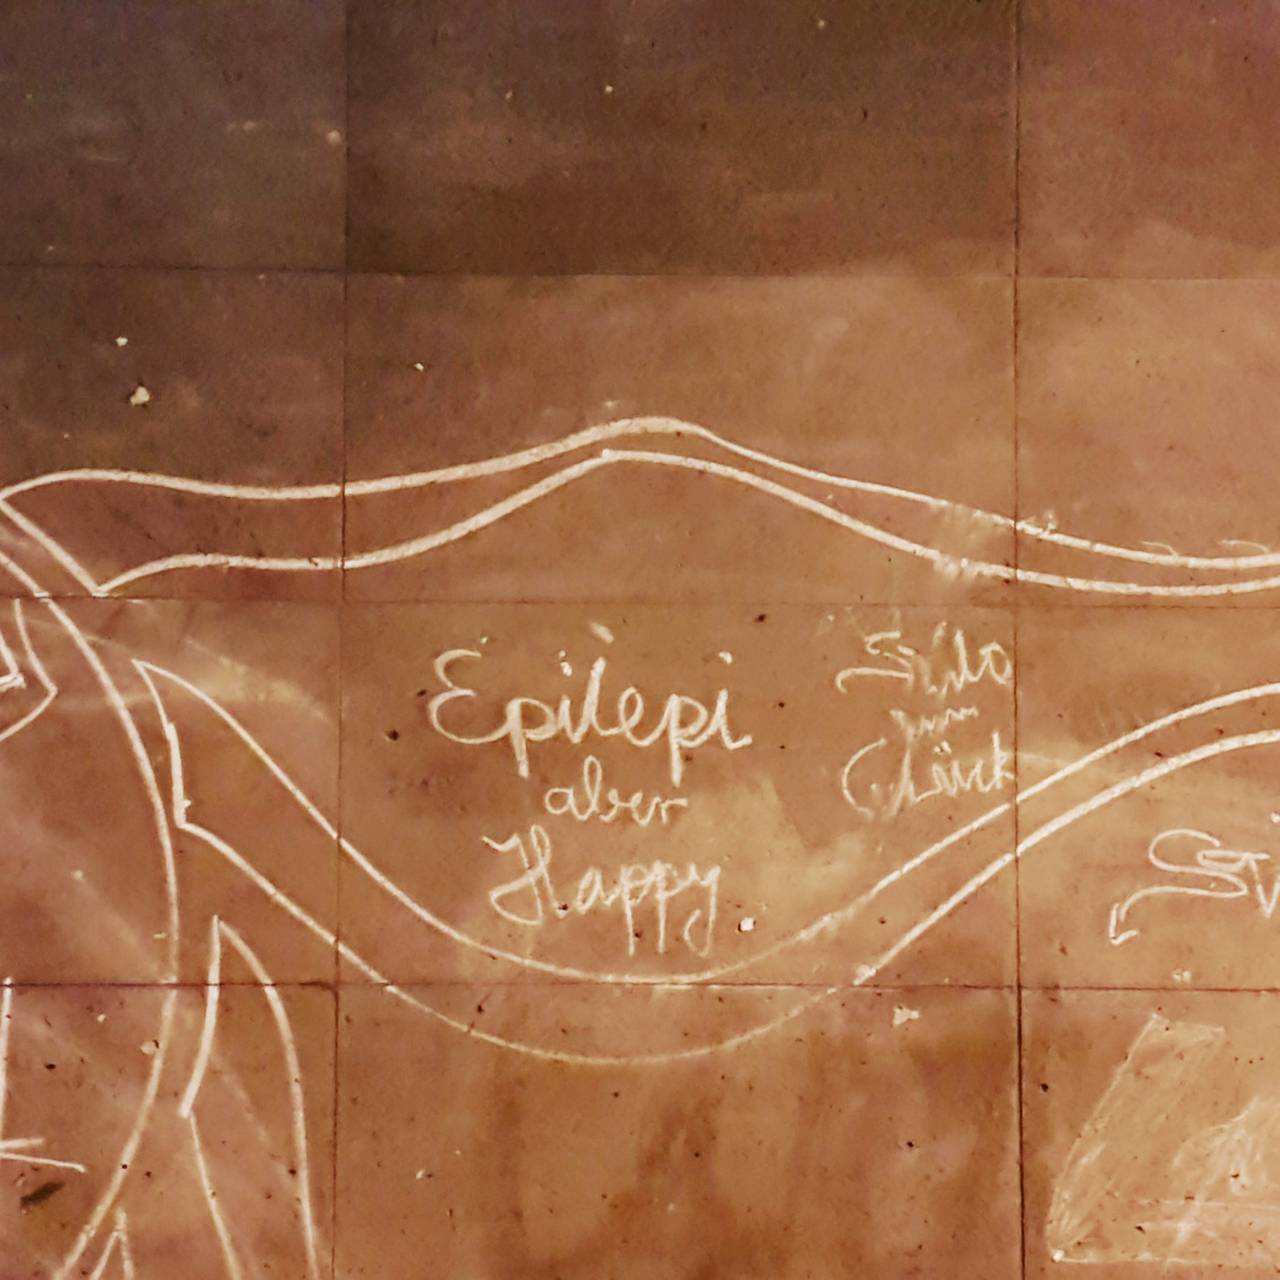 Epilepi
aber
Happy
zum
Glück